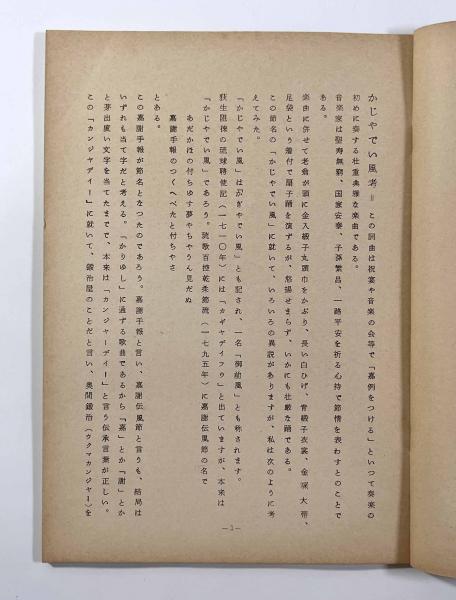 かじやでい風考＝この詞曲は祝宴や音楽の会等で「嘉例をつける」といつて奏楽の
初めに奏する壮重典雅な楽曲である。
音楽家は聖寿無窮、国家安泰、子孫繁昌、一路平安を祈る心持で節情を表わすとのことで
ある。
楽曲に併せて老翁が頭に金入緞子丸頭巾をかぶり、長い白ひげ、青緞子衣裳、金襴大帯、
足袋という着付で扇子踊を演ずるが、悠揚せまらず、いかにも壮厳な踊である。
この節名の「かじやでい風」に就いて、いろいろの異説がありますが、私は次のように考
えてみた。
「かじやでい風」はかぎやでい風」とも記され、一名「御前風」とも称されます。
荻生徂徠の琉球聘使記（一七一〇年）には「カギヤデイフウ」と出ていますが、本来は
「かじやでい風」であろう。琉歌百控乾柔節流（一七九五年）に嘉謝伝風節の名で
あだかほの付ちゆす夢やちやうん見だぬ
嘉謝手報のつくへべたと付ちやさ
とある。
この嘉謝手報が節名となつたのであろう。嘉謝手報と言い、嘉謝伝風節と言うも、結局は
いずれも当て字だと考える。「かりゆし」に通ずる歌曲であるから「嘉」とか「謝」とか
と芽出度い文字を当てたまでで、本来は「カンジャーデイー」と言う伝承言葉が正しい。
この「カンジャデイー」に就いて、鍛冶屋のことだと言い、奥間鍛冶（ウクマカンジャー）を
—1—